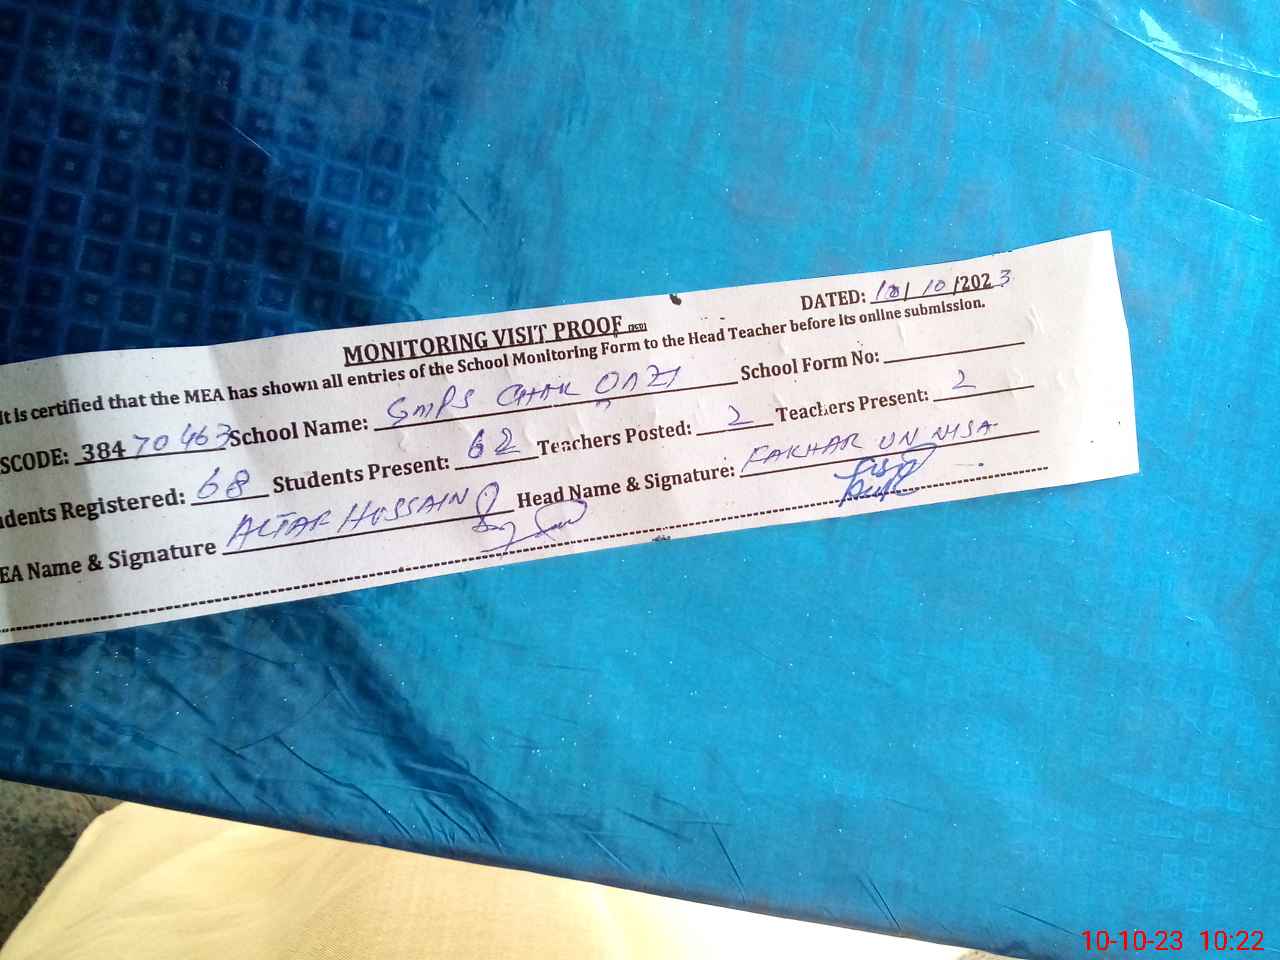 MONITORING VISIT PROOF
DATED: 10/10/2023
It is certified that the MEA has shown all entries of the School Monitoring Form to the Head Teacher before its online submission.
SCODE: 38470463 School Name: GMPS CHAK QAZI School Form No:
dents Registered: 68 Students Present: 62 Teachers Posted: 2 Teachers Present: 2
EA Name & Signature ALTAF HUSSAIN Head Name & Signature: FAKHAR UN NISA
10-10-23 10:22